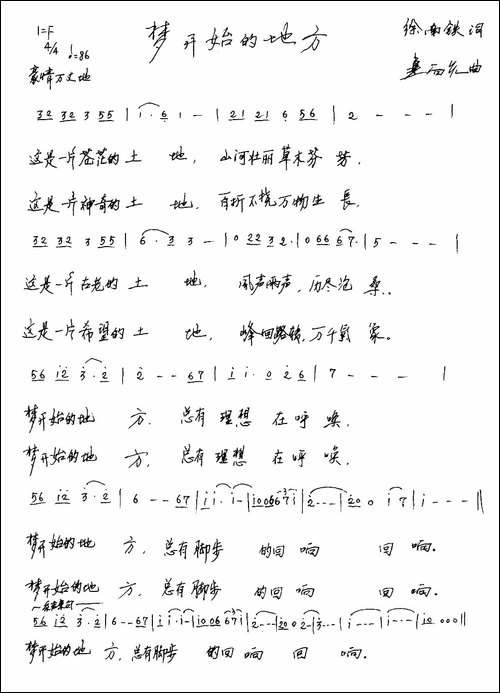 1=F
4/4 ♩=86
梦开始的地方
徐南铁 词
曲
豪情万丈地
32 32 3 55 | 1· 6 1 - | 21 21 6 56 | 2 - - - |
这是一片苍茫的土 地，山河壮丽草木芬 芳，
这是一片神奇的土 地，百折不挠万物生 長，
32 32 3 55 | 6· 3 3 - | 0 22 3 2· | 0 66 6 7· | 5 - - - |
这是一片古老的土 地，风声雨声，历尽沧 桑.
这是一片希望的土 地，峰回路转，万千氣 象。
56 i2 3·2 | 2 - - 67 | i i· 0 2 6 | 7 - - - |
梦开始的地 方，总有理想 在呼 唤，
梦开始的地 方，总有理想 在呼 唤，
56 i2 3·2 | 6 - - 67 |
梦开始的地 方，总有脚步 的回 响 回 响.
梦开始的地 方，总有脚步 的回 响 回 响.
56 i2 3·2 | 6 - - 67 |
梦开始的地 方，总有脚步 的回 响 回 响.